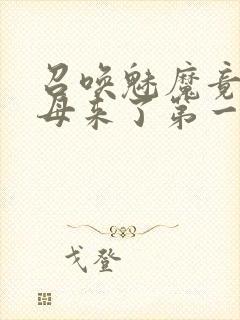 召唤魅魔竟
母来了第一
戈登